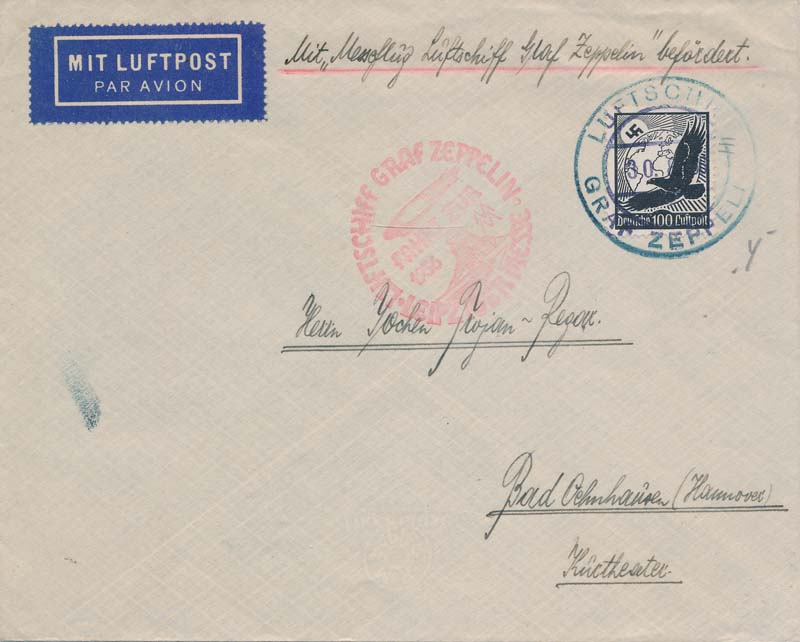 MIT LUFTPOST
PAR AVION
Mit „Messeflug Luftschiff Graf Zeppelin" befördert.
LUFTSCHIFF
GRAF ZEPPELIN
Deutsche 100 Luftpost
LUFTSCHIFF GRAF ZEPPELIN
LEIPZIGER MESSE
1936
Herrn Jochen Trojan-Regar.
Bad Oehnhausen (Hannover)
Kurtheater.